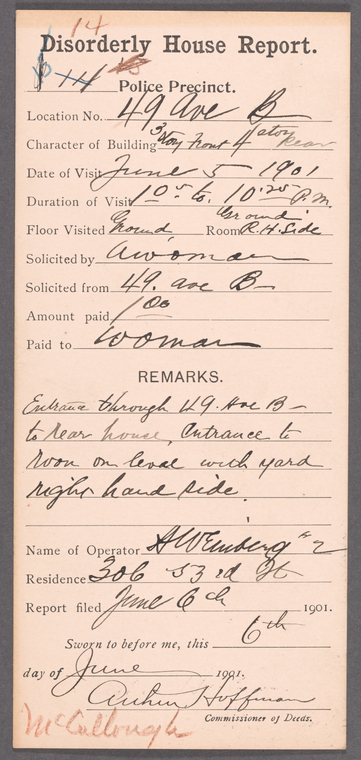 14
Disorderly House Report.
14 Police Precinct.
Location No. 49 Ave B
Character of Building 3 Story Front 4 story Rear
Date of Visit June 5 1901
Duration of Visit 10 05 to 10 25 P.M.
Floor Visited Ground Room Ground R.H. Side
Solicited by A woman
Solicited from 49. Ave B
Amount paid 1 00
Paid to Woman
REMARKS.
Entrance through 49. Ave B
to rear house, Entrance to
Room on level with yard
right hand side.
Name of Operator
Residence 306 53rd St
Report filed June 6th 1901.
Sworn to before me, this 6th
day of June 1901.
Arthur Hoffman
Commissioner of Deeds.
McCullough